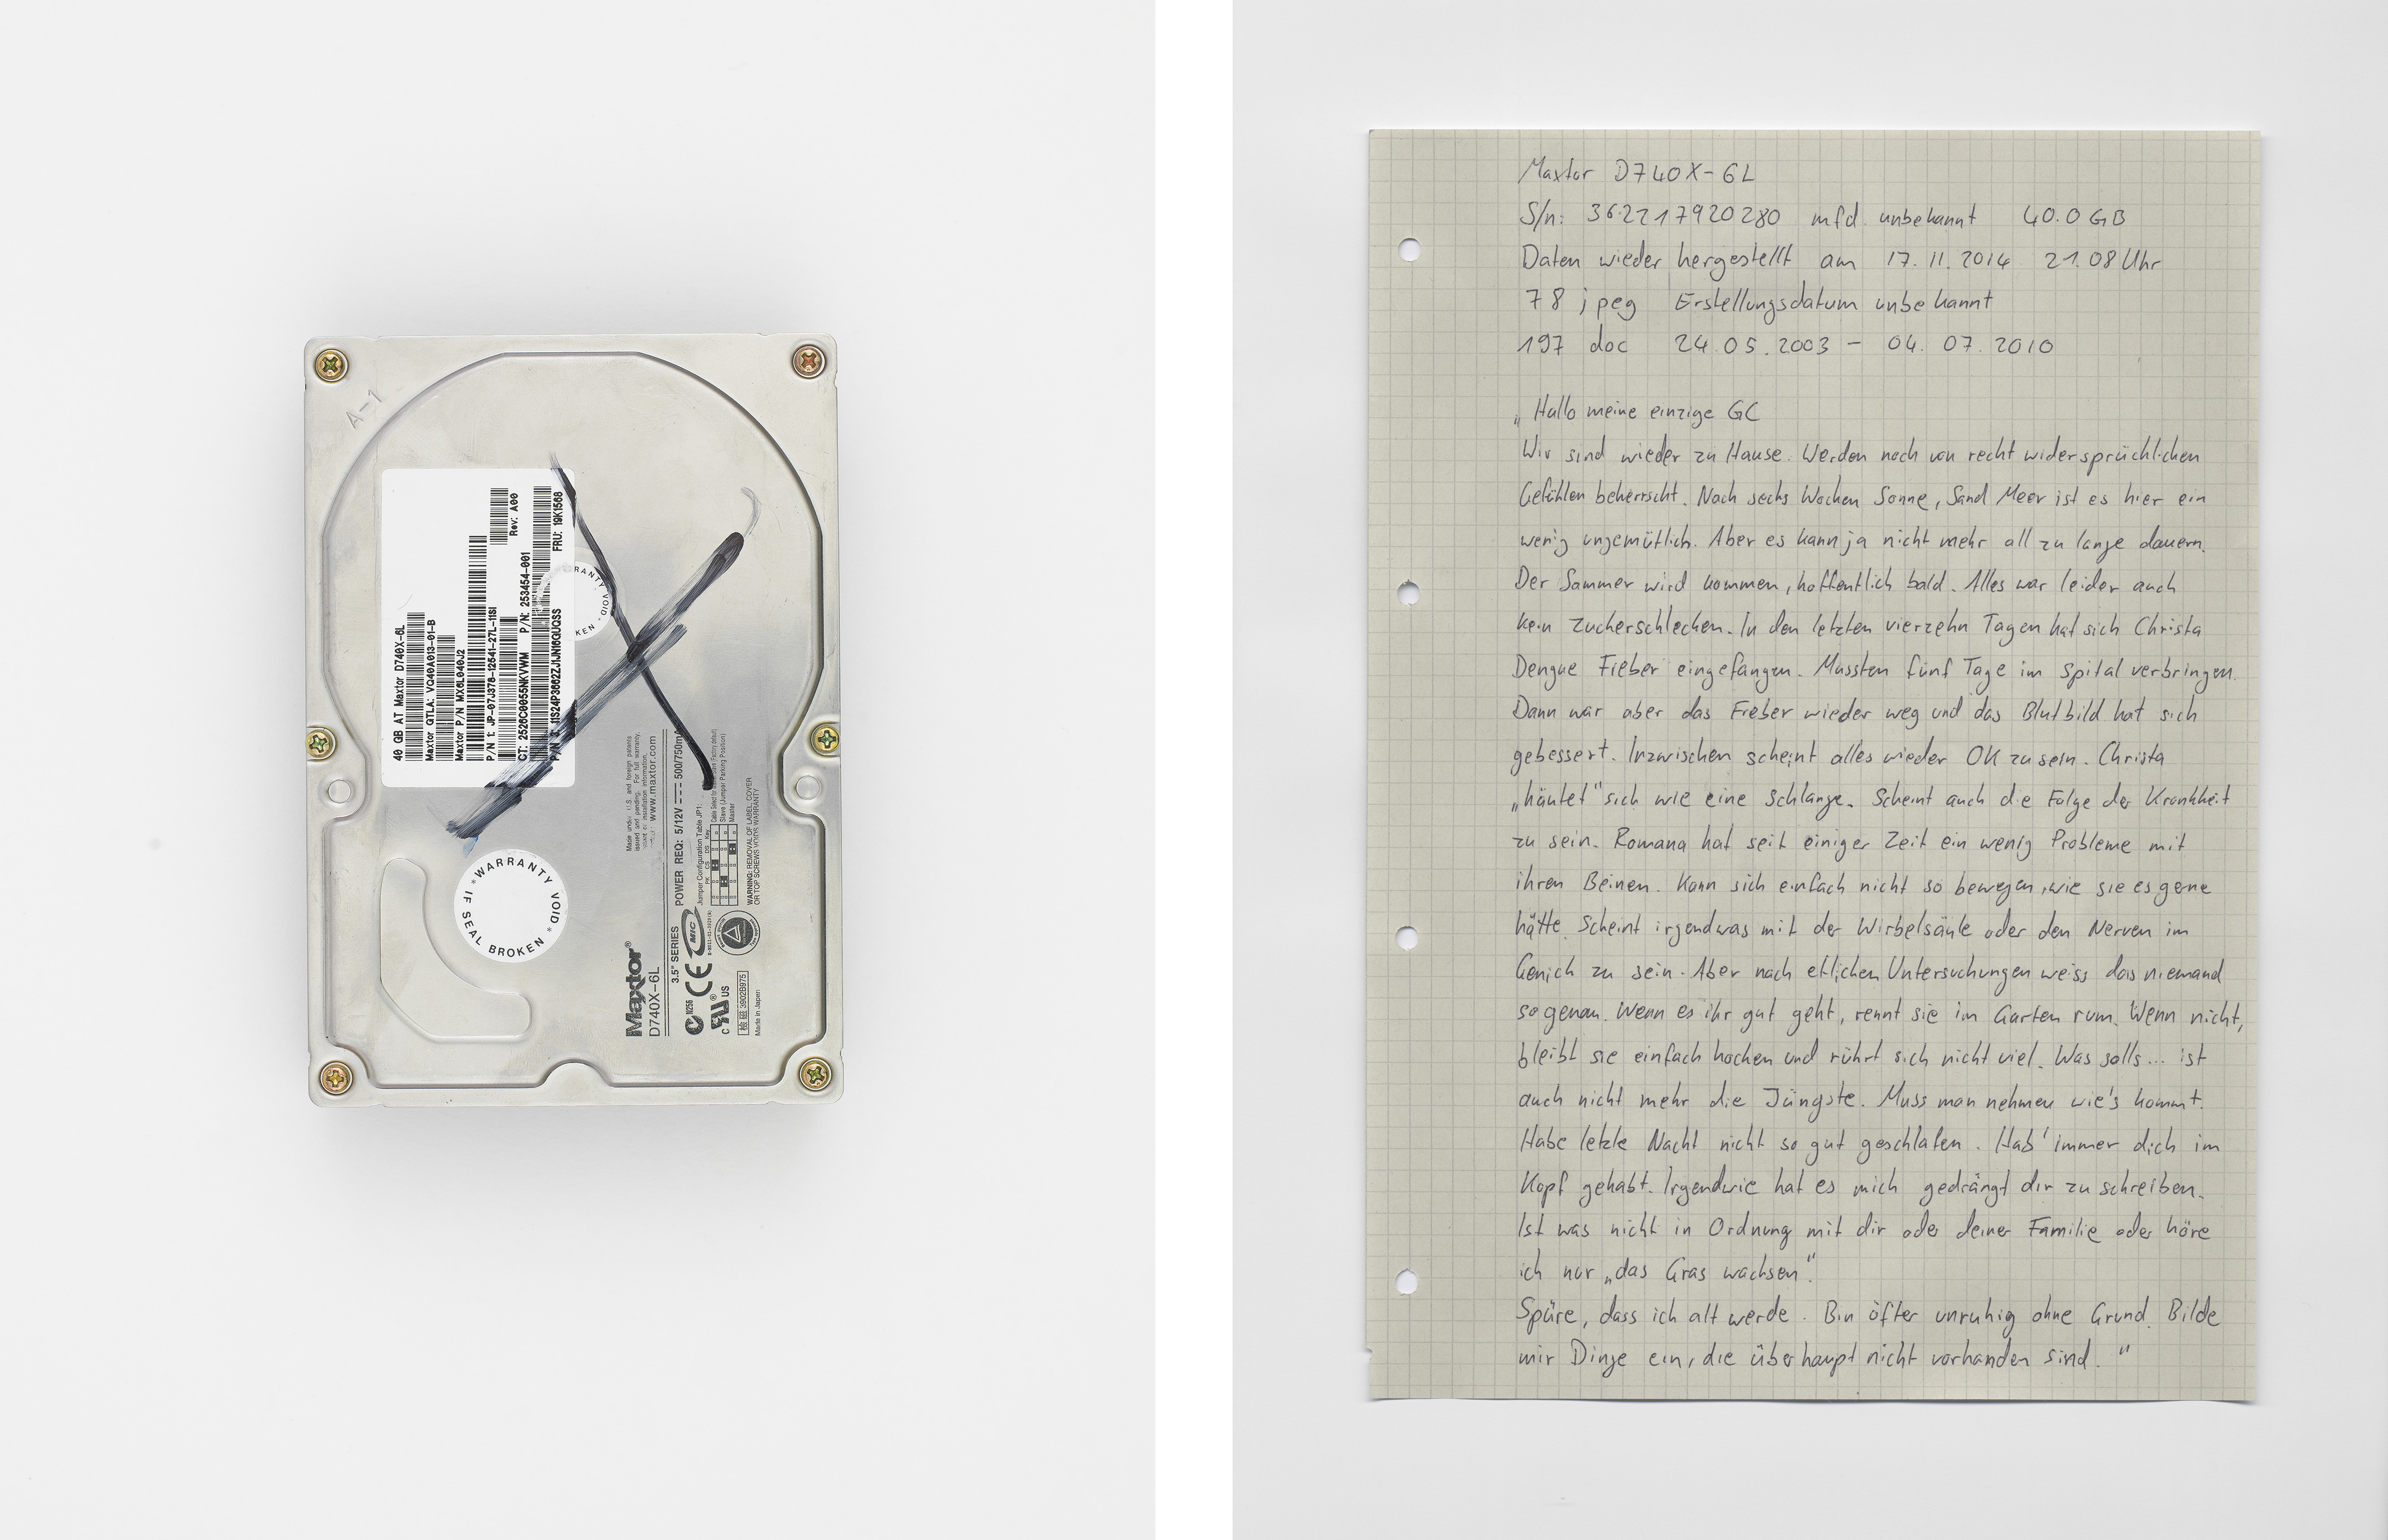 A-1
40 GB AT Maxtor D740X-6L
Maxtor GTLA: VQ40A013-01-B
Maxtor P/N MX6L040J2
P/N t: JP-07J378-12541-27L-11SI
Rev: A00
CT: 2526C0055NKVWM P/N: 253454-001
FRU: 19K1568
WARRANTY VOID
WARRANTY VOID * IF SEAL BROKEN *
Maxtor®
D740X-6L
3.5" SERIES POWER REQ: 5/12V 500/750mA
www.maxtor.com
Jumper Configuration Table JP1:
Slave (Jumper Parking Position)
Master
WARNING: REMOVAL OF LABEL, COVER
OR TOP SCREWS VOIDS WARRANTY
N256 CE MIC
C US
Made in Japan
Maxtor D740X-6L
S/n: 362217920280 mfd unbekannt 40.0 GB
Daten wieder hergestellt am 17.11.2014 21.08 Uhr
78 jpeg Erstellungsdatum unbekannt
197 doc 24.05.2003 - 04.07.2010
„Hallo meine einzige GC
Wir sind wieder zu Hause. Werden noch von recht widersprüchlichen
Gefühlen beherrscht. Nach sechs Wochen Sonne, Sand Meer ist es hier ein
wenig ungemütlich. Aber es kann ja nicht mehr all zu lange dauern.
Der Sommer wird kommen, hoffentlich bald. Alles war leider auch
kein Zuckerschlecken. In den letzten vierzehn Tagen hat sich Christa
Dengue Fieber eingefangen. Mussten fünf Tage im Spital verbringen.
Dann war aber das Fieber wieder weg und das Blutbild hat sich
gebessert. Inzwischen scheint alles wieder OK zu sein. Christa
„häutet" sich wie eine Schlange. Scheint auch die Folge der Krankheit
zu sein. Romana hat seit einiger Zeit ein wenig Probleme mit
ihren Beinen. Kann sich einfach nicht so bewegen, wie sie es gerne
hätte. Scheint irgendwas mit der Wirbelsäule oder den Nerven im
Genick zu sein. Aber nach etlichen Untersuchungen weiss das niemand
so genau. Wenn es ihr gut geht, rennt sie im Garten rum. Wenn nicht,
bleibt sie einfach hocken und rührt sich nicht viel. Was solls... ist
auch nicht mehr die Jüngste. Muss man nehmen wie's kommt.
Habe letzte Nacht nicht so gut geschlafen. Hab' immer dich im
Kopf gehabt. Irgendwie hat es mich gedrängt dir zu schreiben.
Ist was nicht in Ordnung mit dir oder deiner Familie oder höre
ich nur „das Gras wachsen".
Spüre, dass ich alt werde. Bin öfter unruhig ohne Grund. Bilde
mir Dinge ein, die überhaupt nicht vorhanden sind."